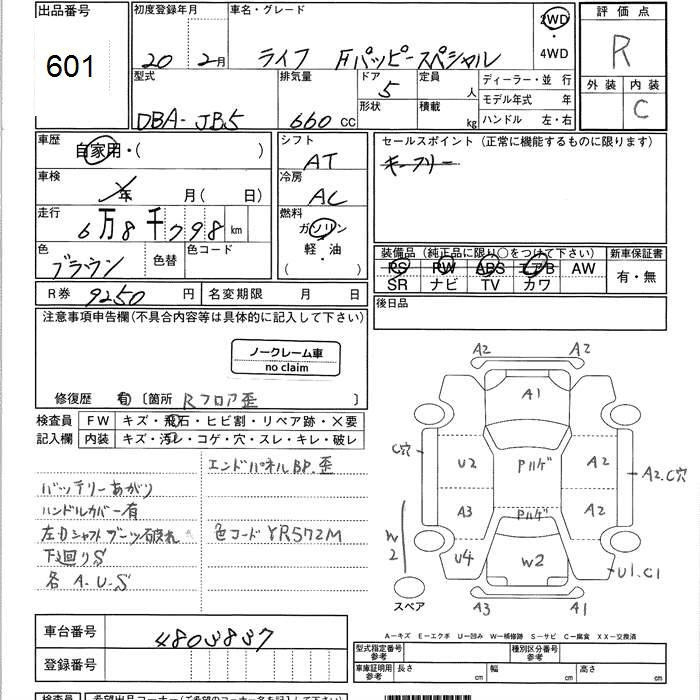 出品番号
601
初度登録年月
20年 2月
車名・グレード
ライフ Fハッピースペシャル
2WD
4WD
評価点
R
外装 内装
C
型式
DBA-JB5
排気量
660 CC
ドア
5
形状
定員
人
積載
kg
ディーラー・並 行
モデル年式 年
ハンドル 左・右
車歴
自家用・( )
車検
年 月( 日)
走行
6万8千798 km
色
ブラウン
色替
色コード
R券 9250 円
名変期限 月 日
シフト
AT
冷房
AC
燃料
ガソリン
軽・油
( ・ )
セールスポイント(正常に機能するものに限ります)
キーフリー
装備品 (純正品に限り○をつけて下さい)
PS PW ABS エアB AW
SR ナビ TV カワ
新車保証書
有・無
後日品
注意事項申告欄(不具合内容等は具体的に記入して下さい)
ノークレーム車
no claim
修復歴 有 〔箇所 Rフロア歪 〕
検査員
記入欄
FW キズ・飛石・ヒビ割・リペア跡・×要
内装 キズ・汚レ・コゲ・穴・スレ・キレ・破レ
エンドパネルBP.歪
バッテリーあがり
ハンドルカバー有
左Dシャフトブーツ破れ
色コード YR572M
下廻りS
各 A.U.S
A2 A2
A1
C穴
U2
Pハゲ
A2
A2.C穴
A3
Pハゲ
A2
W2
U4
W2
U1.C1
スペア
A3 A1
A-キズ E-エクボ U-凹み W-補修跡 S-サビ C-腐食 XX-交換済
車台番号
4803837
登録番号
型式指定番号
参考
種別区分番号
参考
車庫証明用
参考
長さ cm
幅 cm
高さ cm
検査員
希望出品コーナー(ご希望のコーナー名を記入)